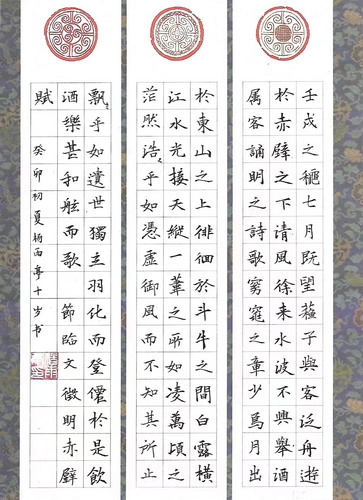 壬戌之穐七月既望蘓子與客泛舟遊
於赤壁之下清風徐来水波不興舉酒
属客誦明之詩歌窈窕之章少焉月出
於東山之上徘徊於斗牛之間白露橫
江水光接天縱一葦之所如凌萬頃之
茫然浩々乎如憑虛御風而不知其所止
飄々乎如遺世獨立羽化而登僊於是飲
酒樂甚扣舷而歌 節臨文徵明赤壁
賦 癸卯初夏杨雨亭十岁书